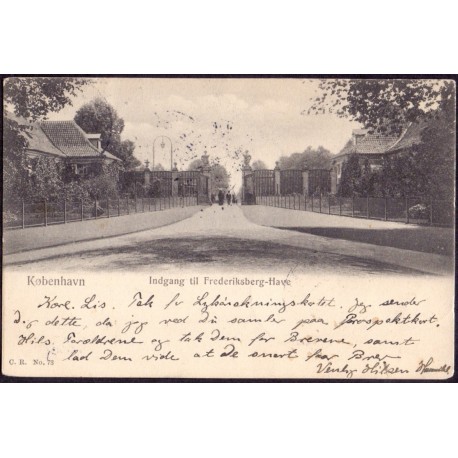 København
Indgang til Frederiksberg-Have
Kære Lis. Tak for Lykønskningskortet. Jeg sender
dig dette, da jeg ved du samler paa Prospektkort.
Hils. Forældrene og tak dem for Brevene, samt
lad Dem vide at de snart faar Brev
C. R. No. 72
Venlig Hilsen